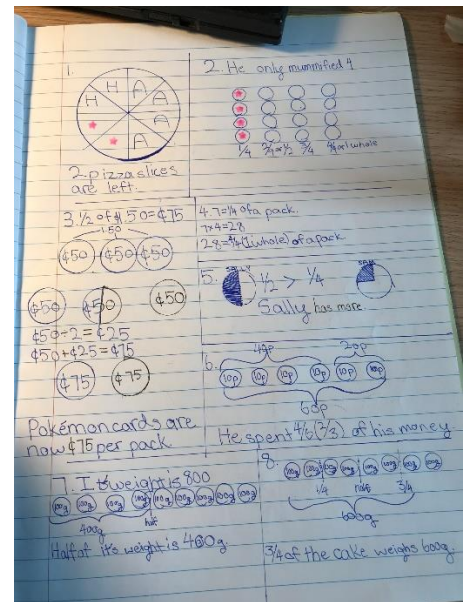 1.
H A
H A
A
A
2 pizza slices
are left.
2. He only mummified 4
1/4 2/4 or 1/2 3/4 4/4 or 1 whole
3. 1/2 of $1.50 = ¢75
1.50
¢50 ¢50 ¢50
¢50 ¢50 ¢50
¢50÷2=¢25
¢50+¢25=¢75
¢75 ¢75
Pokémon cards are
now ¢75 per pack
4. 7=1/4 of a pack.
7x4=28
28=4/4(1whole) of a pack
5. SALLY 1/2 > 1/4 SAM
Sally has more.
6. 40p 20p
10p 10p 10p 10p 10p 10p
60p
He spent 4/6 (2/3) of his money
7. It's weight is 800
100g 100g 100g 100g 100g 100g 100g 100g
400g half
Half of it's weight is 400g.
8.
100g 100g 100g 100g 100g 100g 100g 100g
1/4 half 3/4
600g
3/4 of the cake weighs 600g.